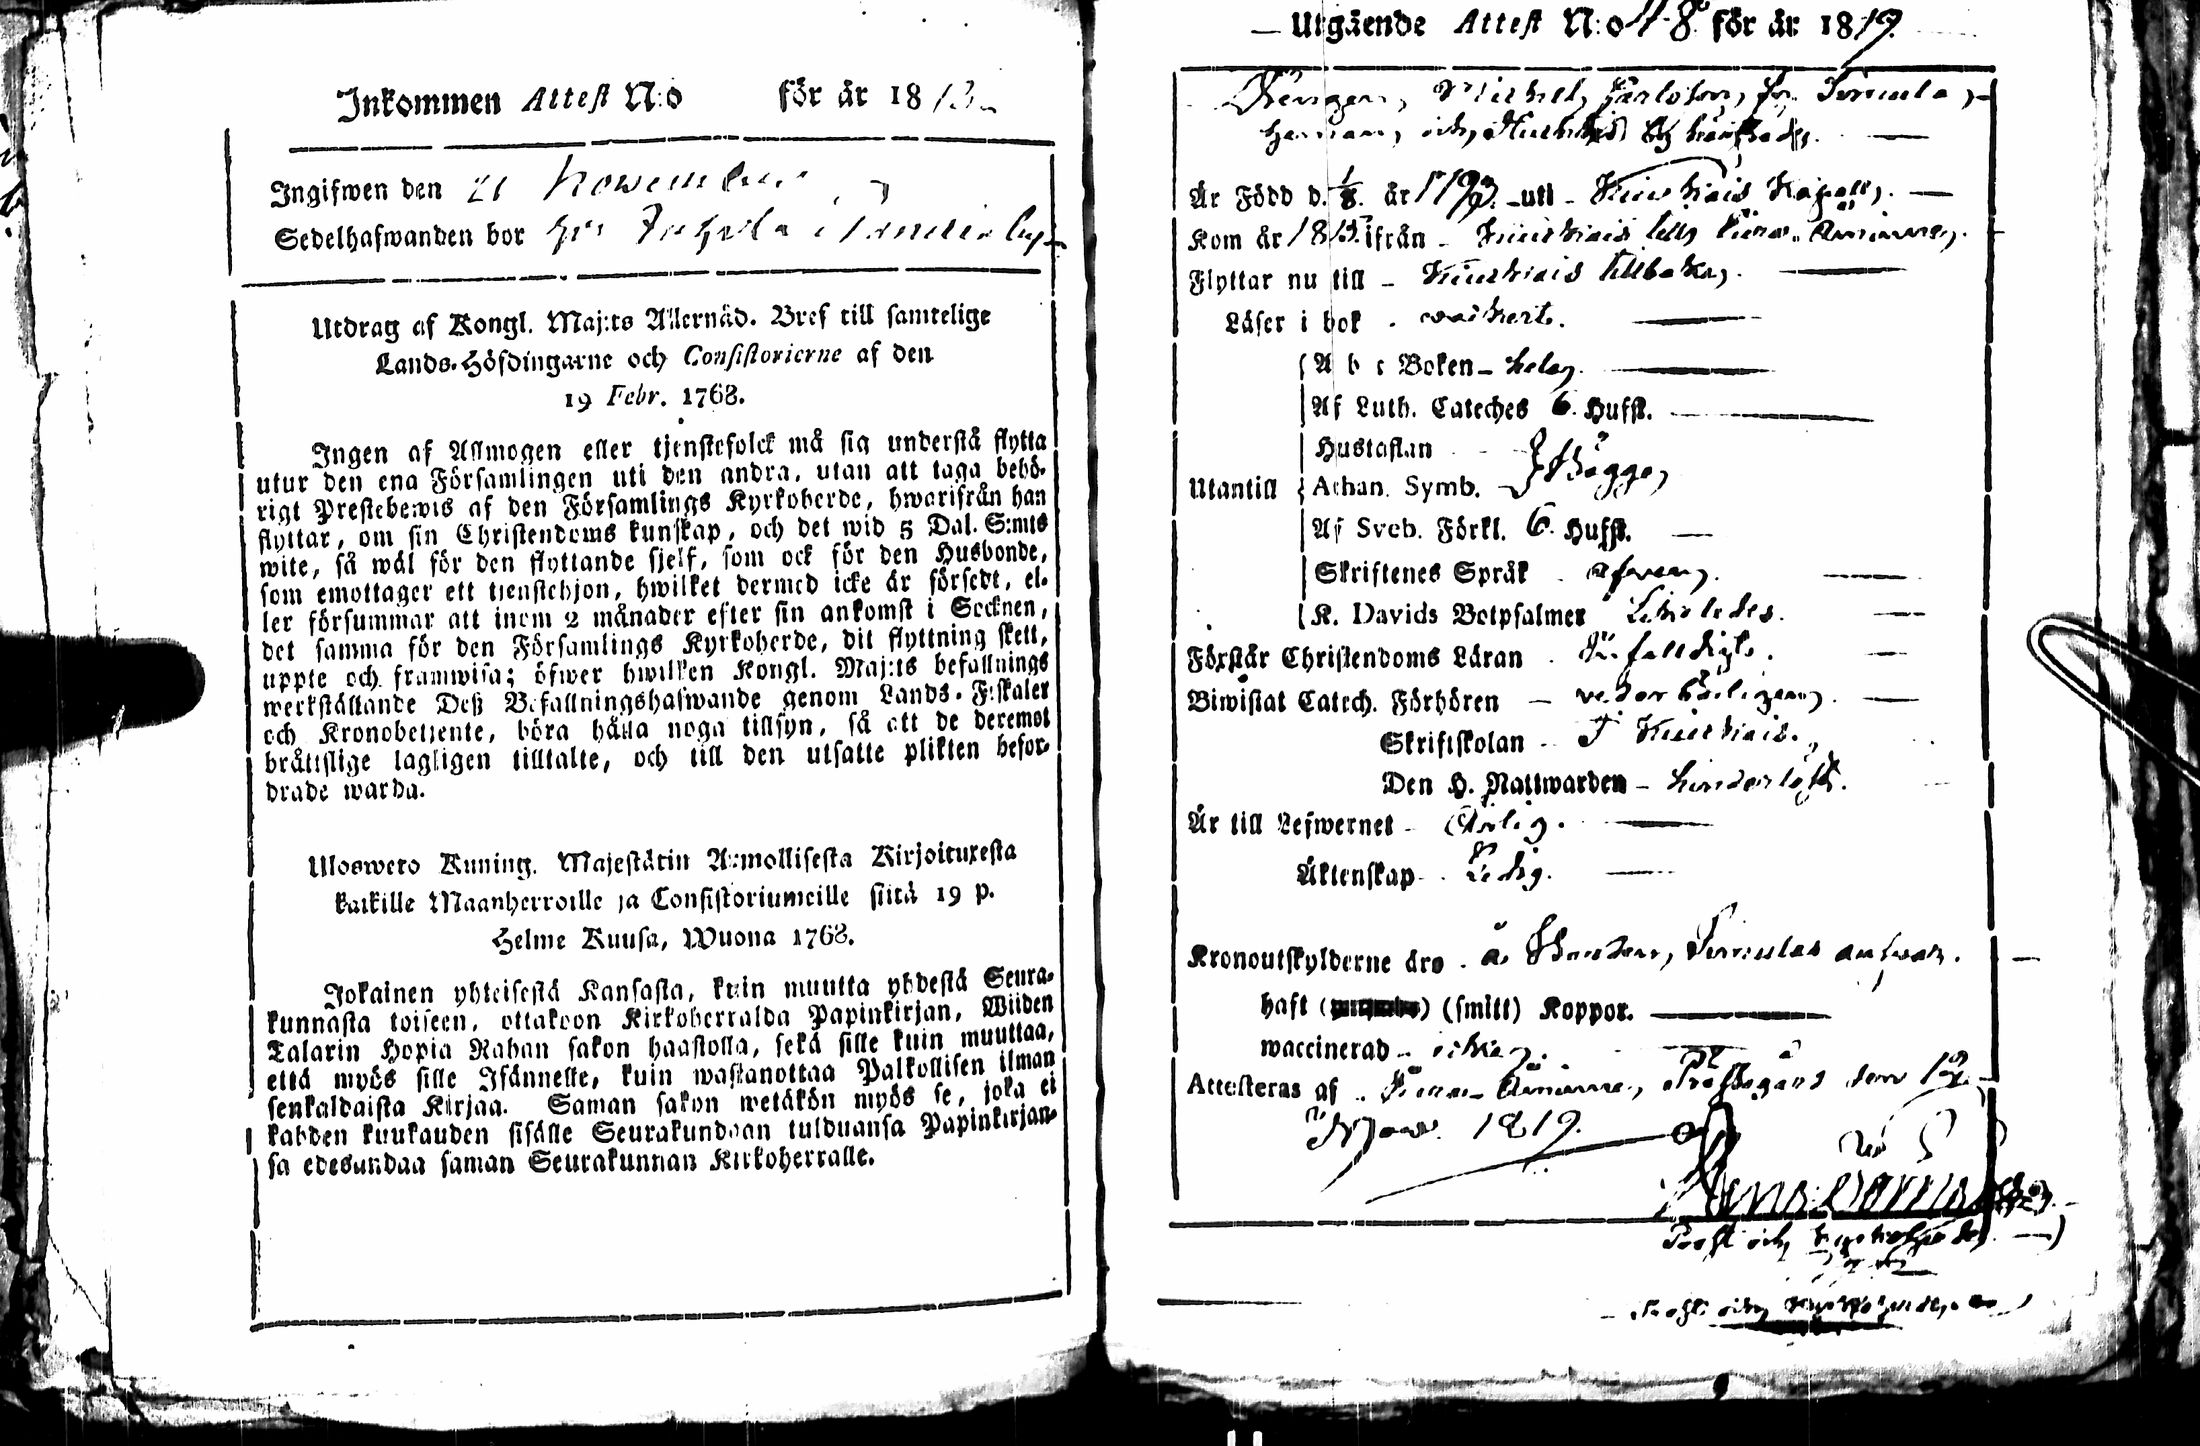 Inkommen Attest N:o för år 18
Ingifwen den 21 November
Sedelhafwanden bor hos
Utdrag af Kongl. Maj:ts Allernåd. Bref till samtelige
Lands-Höfdingarne och Consistorierne af den
19 Febr. 1768.
Ingen af Allmogen eller tjenstefolck må sig understå flytta
utur den ena Församlingen uti den andra, utan att taga behö-
rigt Prestebewis af den Församlings Kyrkoherde, hwarifrån han
flyttar, om sin Christendoms kunskap, och det wid 5 Dal. S:mts
wite, så wäl för den flyttande sjelf, som ock för den Husbonde,
som emottager ett tjenstehjon, hwilket dermed icke är försedt, el-
ler försummar att inom 2 månader efter sin ankomst i Socknen,
det samma för den Församlings Kyrkoherde, dit flyttning skett,
uppte och framwisa; öfwer hwilken Kongl. Maj:ts befallnings
werkställande Deß Befallningshafwande genom Lands-Fiskaler
och Kronobetjente, böra hålla noga tillsyn, så att de deremot
bråttslige lagligen tilltalte, och till den utsatte plikten befor-
drade warda.
Ulosweto Kuning. Majestätin Armollisesta Kirjoituxesta
kaikille Maanherroille ja Consistoriumeille siitä 19 p.
Helme Kuusa, Wuona 1768.
Jokainen yhteisestä Kansasta, kuin muutta yhdestä Seura-
kunnasta toiseen, ottakoon Kirkoherralda Papinkirjan, Wiiden
Talarin Hopia Rahan sakon haastolla, sekä sille kuin muuttaa,
että myös sille Isännelle, kuin wastanottaa Palkollisen ilman
senkaldaista Kirjaa. Saman sakon wetäkön myös se, joka ei
kahden kuukauden sisälle Seurakundaan tulduansa Papinkirjan-
sa edesandaa saman Seurakunnan Kirkoherralle.
Utgäende Attest N:o 48 för år 1819.
Drengen, Michel Carlsson, fr.
Är Född d. 1/8. år 1793. uti Kuuskois Kapell,
Kom år 1815. ifrån Kuuskois
Flyttar nu till Kuuskois tillbaka,
Läser i bok wackert.
A b c Boken hela,
Af Luth. Cateches 6. Hufst.
Hustaflan
Utantill Athan. Symb. Bägge,
Af Sveb. Förkl. 6. Hufst.
Skriftenes Språk afwen,
K. Davids Botpsalmer Likaledes.
Förstår Christendoms Läran Enfalldigt.
Biwistat Catech. Förhören wederbörligen,
Skriftskolan I Kuuskois.
Den H. Nattwarden hinderlöst.
Är till Lefwernet Ärlig.
Äktenskap Ledig.
Kronoutskylderne äro
haft ( ) (smitt) Koppor.
waccinerad icke,
Attesteras af Prästegård den 12
Now. 1819.
Prost och Kyrkoherde,
Prost och Kyrkoherde,